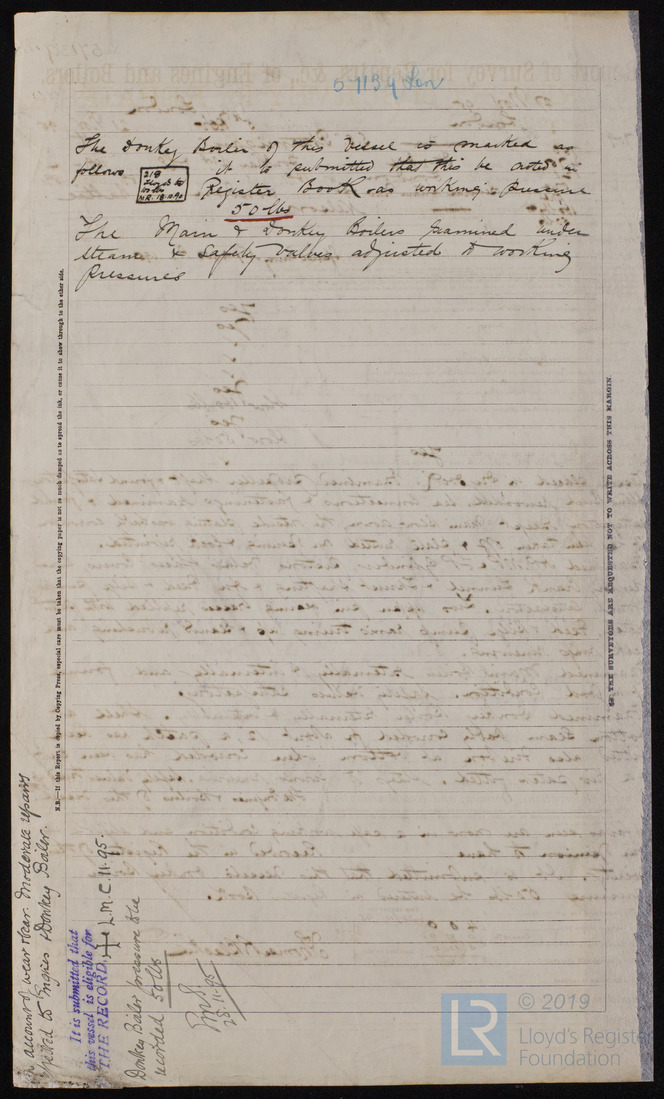 51134 Lon
The Donkey Boiler of this Vessel is marked as
follows it is submitted that this be noted in
219
100 lbs
Register Book as working pressure
50 lbs
The Main & Donkey Boilers examined under
steam & Safety Valves adjusted to working
pressures
N.B.—If this Report is copied by Copying Press, especial care must be taken that the copying paper is not so much damped as to spread the ink, or cause it to show through to the other side.
THE SURVEYORS ARE REQUESTED NOT TO WRITE ACROSS THIS MARGIN.
account of wear & tear. Moderate repairs
effected to Engines & Donkey Boiler.
It is submitted that
this vessel is eligible for
THE RECORD. + L.M.C. 11.95.
Donkey Boiler pressure to be
recorded 50 lbs
25.11.95
LR © 2019
Lloyd's Register
Foundation